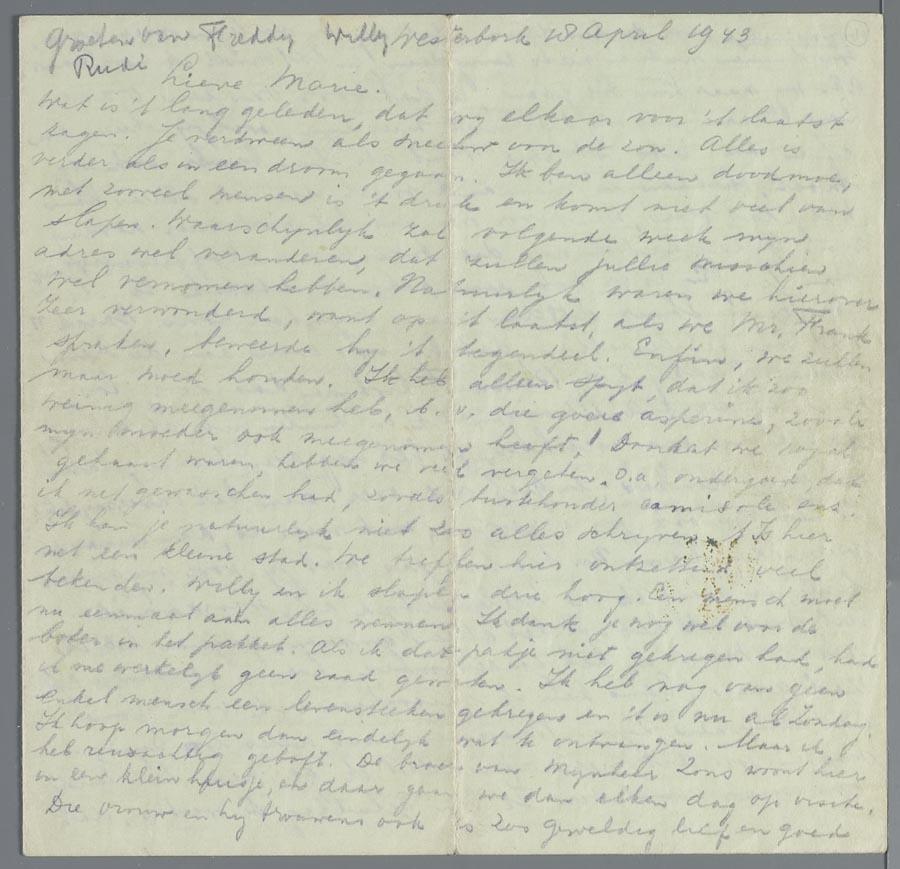 Groeten van Freddy Willy Westerbork 18 April 1943
Rudi
Lieve Marie.
Wat is 't lang geleden, dat wy elkaar voor 't laatst
zagen. Je verdween als sneeuw voor de zon. Alles is
verder als in een droom gegaan. Ik ben alleen doodmoe,
met zooveel mensen is 't druk en komt niet veel van
slapen. Waarschynlyk zal volgende week myn
adres wel veranderen, dat zullen jullie misschien
wel vernomen hebben. Natuurlyk waren we hierover
zeer verwonderd, want op 't laatst, als we Mr. Frank
spraken, beweerde hy 't tegendeel. Enfin, we zullen
maar moed houden. Ik heb alleen spyt, dat ik zoo
weinig meegenomen heb, b.v. die goeie asperine, zooals
myn moeder ook meegenomen heeft! Doordat we nogal
gehaast waren, hebben we veel vergeten, o.a. ondergoed dat
ik net gewasschen had, zooals bustehouder camisole enz.
Ik kan je natuurlyk niet zoo alles schryven. 't Is hier
net een kleine stad. We treffen hier ontzettend veel
bekenden. Willy en ik slapen drie hoog. Een mensch moet
nu eenmaal aan alles wennen. Ik dank je nog wel voor de
boter in het pakket. Als ik dat potje niet gekregen had, had
ik me werkelyk geen raad geweten. Ik heb nog van geen
enkel mensch een levensteeken gekregen en 't is nu al Zondag.
Ik hoop morgen dan eindelyk wat te ontvangen. Maar ik
heb reusachtig geboft. De broer van Mynheer Zons woont hier
in een klein huisje, en daar gaan we dan elken dag op visite.
Die vrouw en hy trouwens ook is zoo geweldig lief en goed